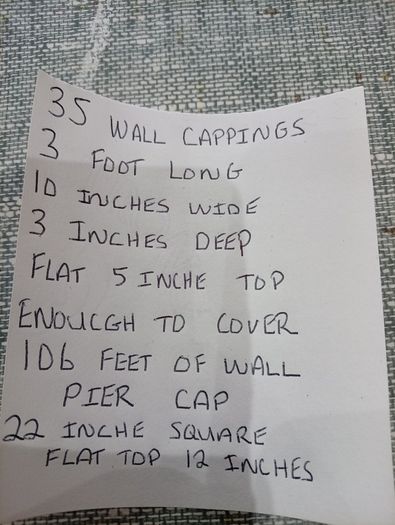 35 WALL CAPPINGS
3 FOOT LONG
10 INCHES WIDE
3 INCHES DEEP
FLAT 5 INCHE TOP
ENOUCGH TO COVER
106 FEET OF WALL
PIER CAP
22 INCHE SQUARE
FLAT TOP 12 INCHES